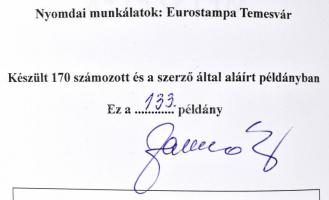 Nyomdai munkálatok: Eurostampa Temesvár
Készült 170 számozott és a szerző által aláírt példányban
Ez a 133. példány